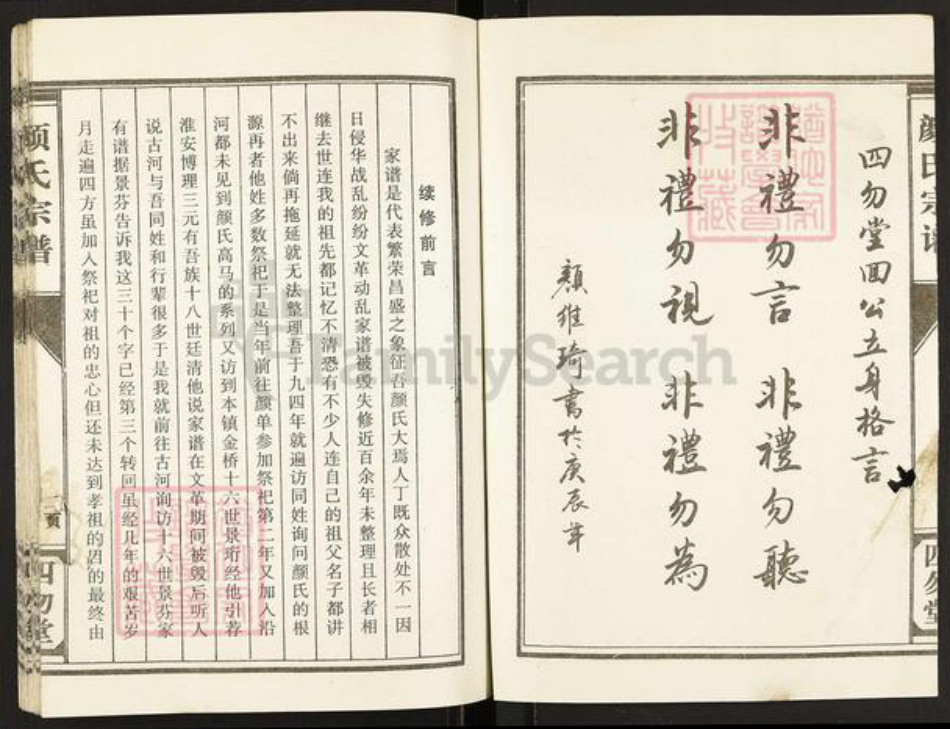 顏氏宗譜
四勿堂
四勿堂回公立身格言
非禮勿言 非禮勿聽
非禮勿視 非禮勿為
顏維琦書於庚辰年
续修前言
家谱是代表繁荣昌盛之象征吾颜氏大焉人丁既众散处不一因
日侵华战乱纷纷文革动乱家谱被毁失修近百余年未整理且长者相
继去世连我的祖先都记忆不清恐有不少人连自己的祖父名子都讲
不出来倘再拖延就无法整理吾于九四年就遍访同姓询问颜氏的根
源再者他姓多数祭祀于是当年前往颜单参加祭祀第二年又加入沿
河都未见到颜氏高马的系列又访到本镇金桥十六世景珩经他引荐
淮安博理三元有吾族十八世廷清他说家谱在文革期间被毁后听人
说古河与吾同姓和行辈很多于是我就前往古河询访十六世景芬家
有谱据景芬告诉我这三十个字已经第三个转回虽经几年的艰苦岁
月走遍四方虽加入祭祀对祖的忠心但还未达到孝祖的的最终由
颜氏宗谱
四勿堂
FamilySearch